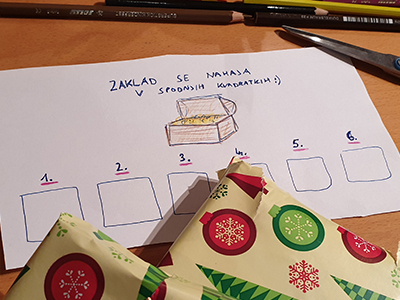 ZAKLAD SE NAHAJA
V SPODNJIH KVADRATKIH :)
1. 2. 3. 4. 5. 6.